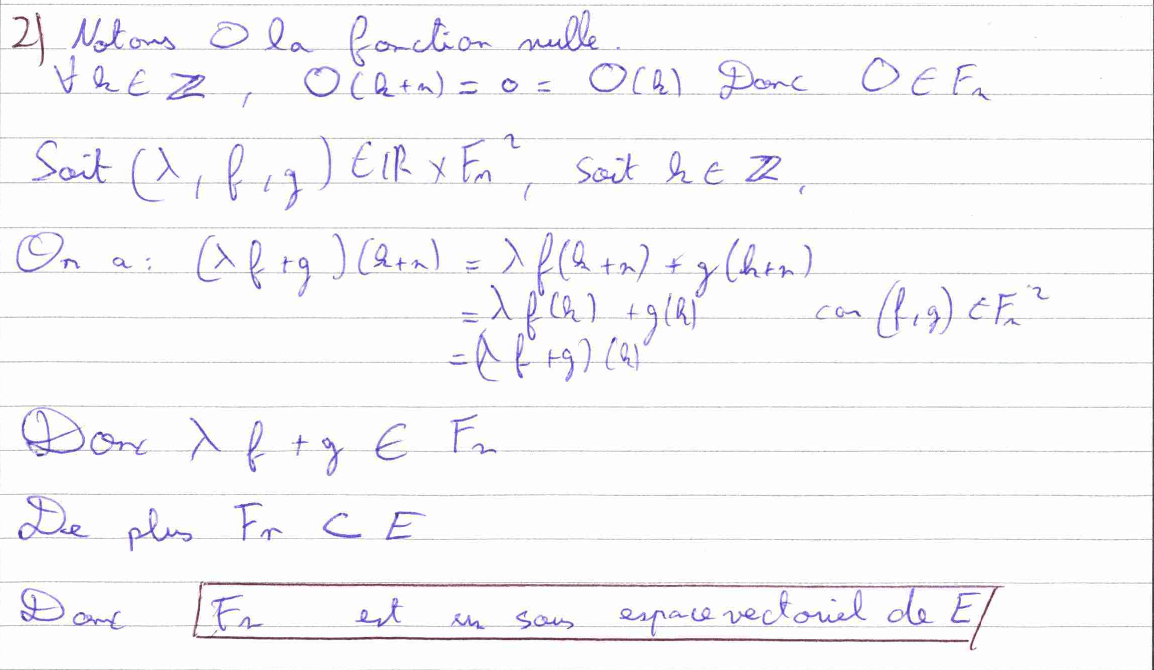 2) Notons O la fonction nulle.
∀ k ∈ ℤ, O(k+n) = 0 = O(k) Donc O ∈ Fn
Soit (λ, f, g) ∈ ℝ × Fn², soit k ∈ ℤ,
On a : (λf+g)(k+n) = λf(k+n) + g(k+n)
= λf(k) + g(k) car (f,g) ∈ Fn²
= (λf+g)(k)
Donc λf + g ∈ Fn
De plus Fn ⊂ E
Donc Fn est un sous espace vectoriel de E